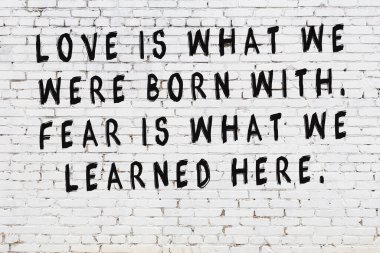 LOVE IS WHAT WE
WERE BORN WITH.
FEAR IS WHAT WE
LEARNED HERE.